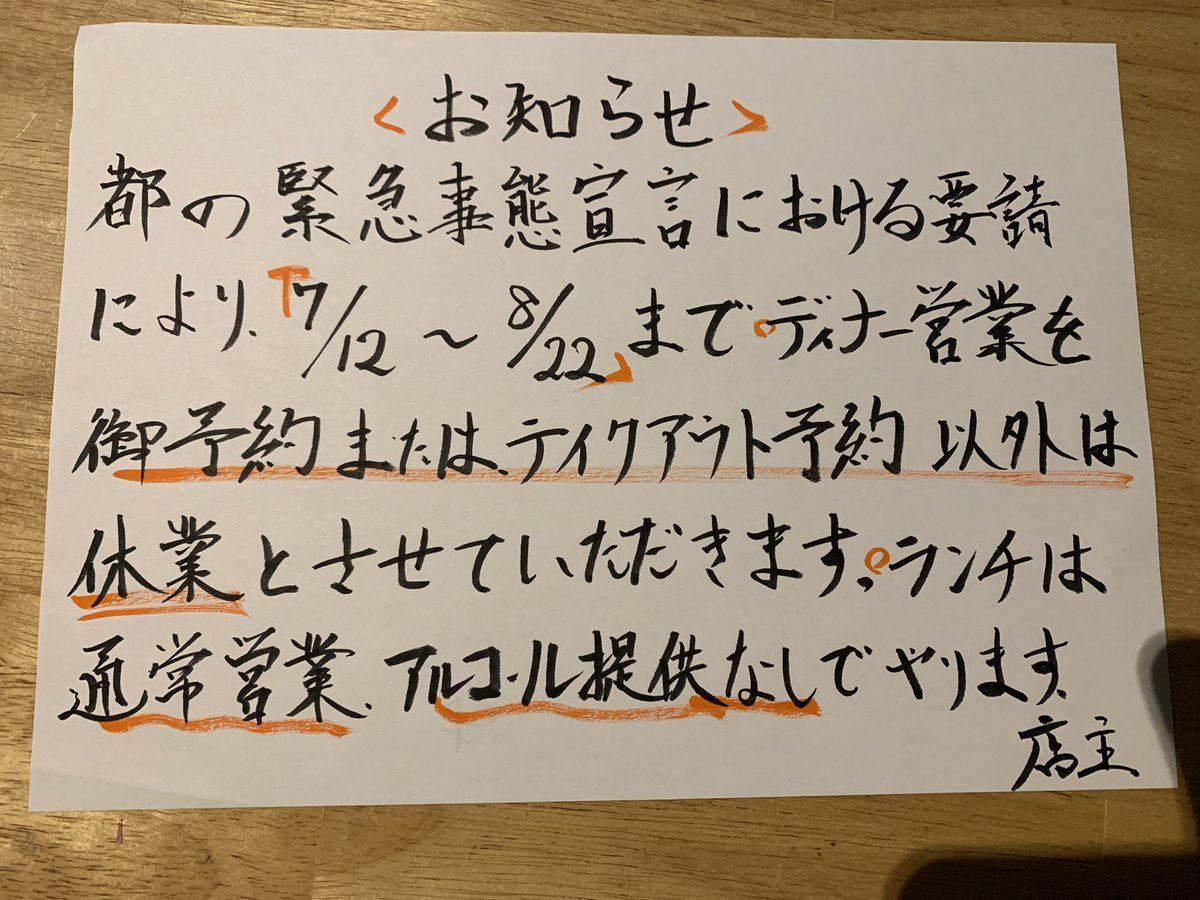 <お知らせ>
都の緊急事態宣言における要請
により、「7/12～8/22」まで。ディナー営業を
御予約または、テイクアウト予約 以外は
休業とさせていただきます。。ランチは
通常営業、アルコール提供なしでやります。
店主